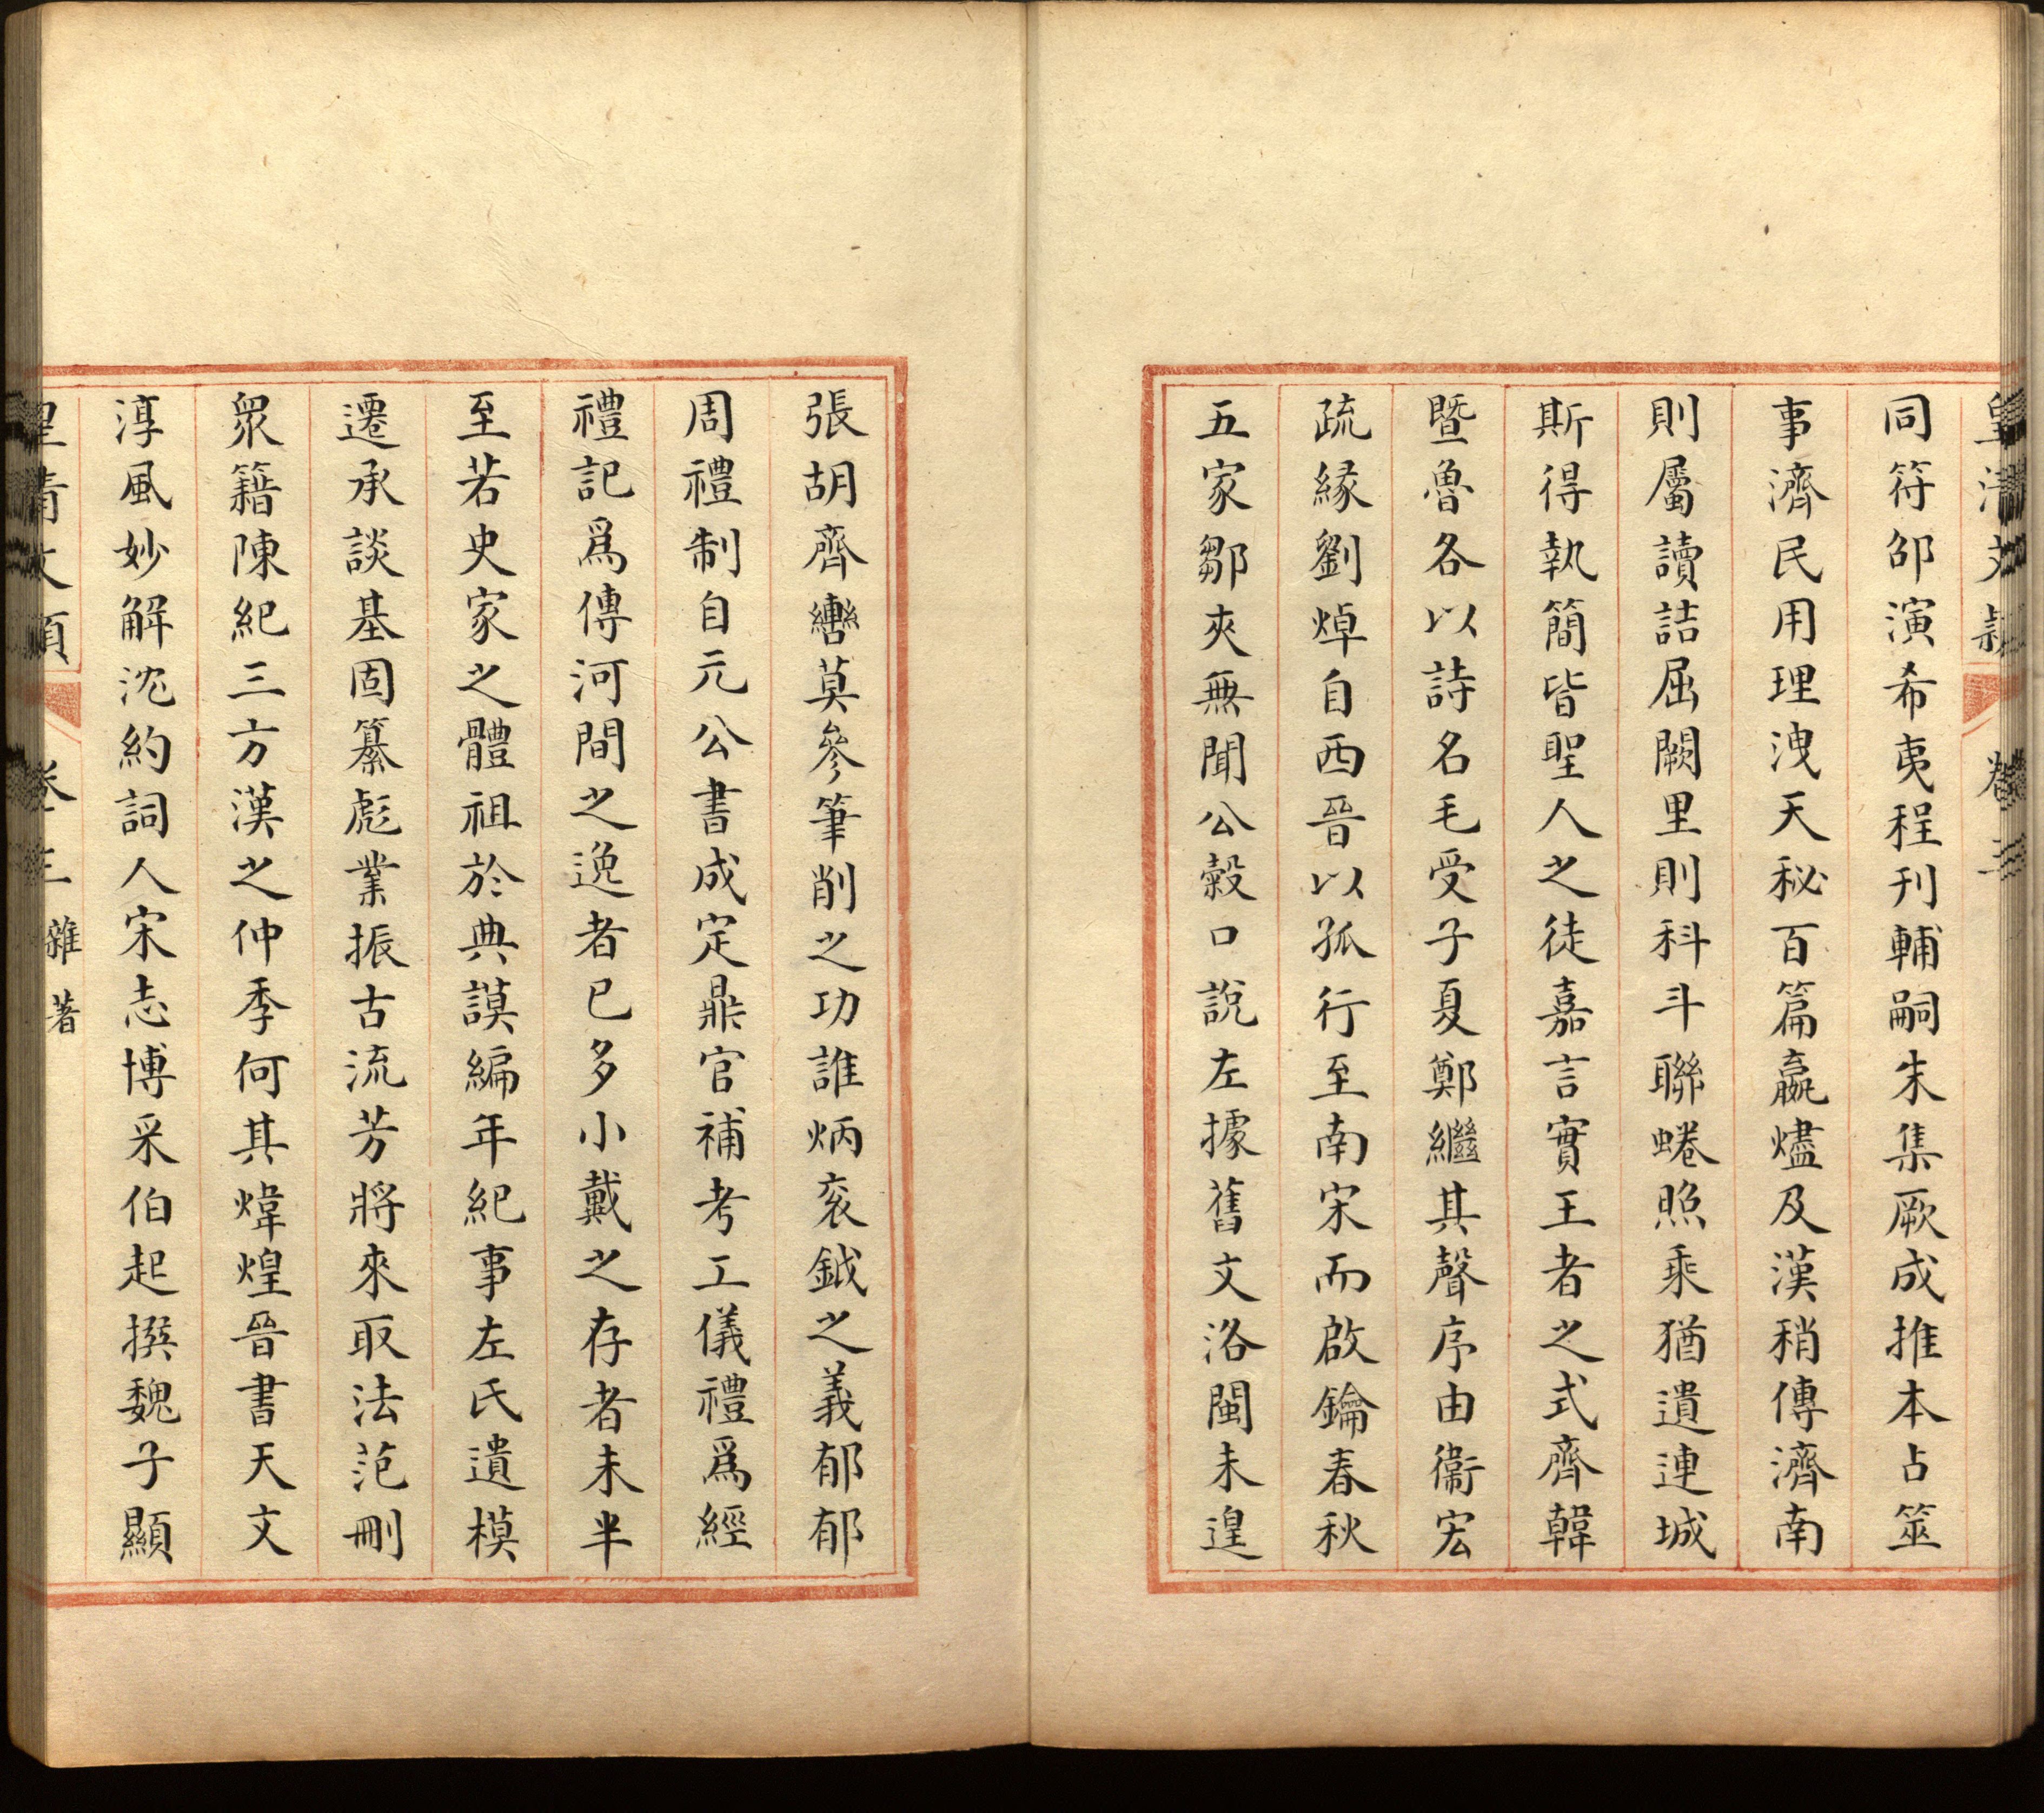 皇清文穎 卷三
同符邵演希夷程刊輔嗣朱集厥成推本占筮
事濟民用理洩天秘百篇嬴燼及漢稍傳濟南
則屬讀詰屈闕里則科斗聯蜷照乘猶遺連城
斯得執簡皆聖人之徒嘉言實王者之式齊韓
暨魯各以詩名毛受子夏鄭繼其聲序由衞宏
疏緣劉焯自西晉以孤行至南宋而啟鑰春秋
五家鄒夾無聞公穀口說左據舊文洛閩未遑
張胡齊轡莫參筆削之功誰炳衮鉞之義郁郁
周禮制自元公書成定鼎官補考工儀禮爲經
禮記爲傳河間之逸者已多小戴之存者未半
至若史家之體祖於典謨編年紀事左氏遺模
遷承談基固纂彪業振古流芳將來取法范刪
衆籍陳紀三方漢之仲季何其煒煌晉書天文
淳風妙解沈約詞人宋志博采伯起撰魏子顯
皇清文穎 卷三 雜著